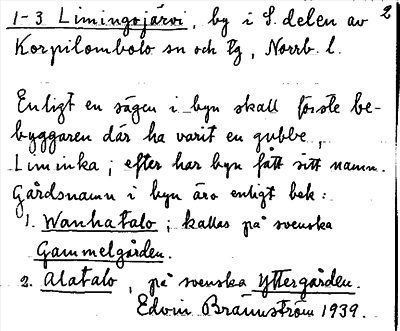 1-3 Limingojärvi, by i S. delen av 2
Korpilombolo sn och tg, Norrb. l.
Enligt en sägen i byn skall förste be-
byggaren där ha varit en gubbe,
Liminka; efter har byn fått sitt namn.
Gårdsnamn i byn äro enligt bek:
1. Wanhatalo; kallas på svenska
Gammelgården.
2. Alatalo, på svenska Yttergården.
Edvin Brännström 1939.